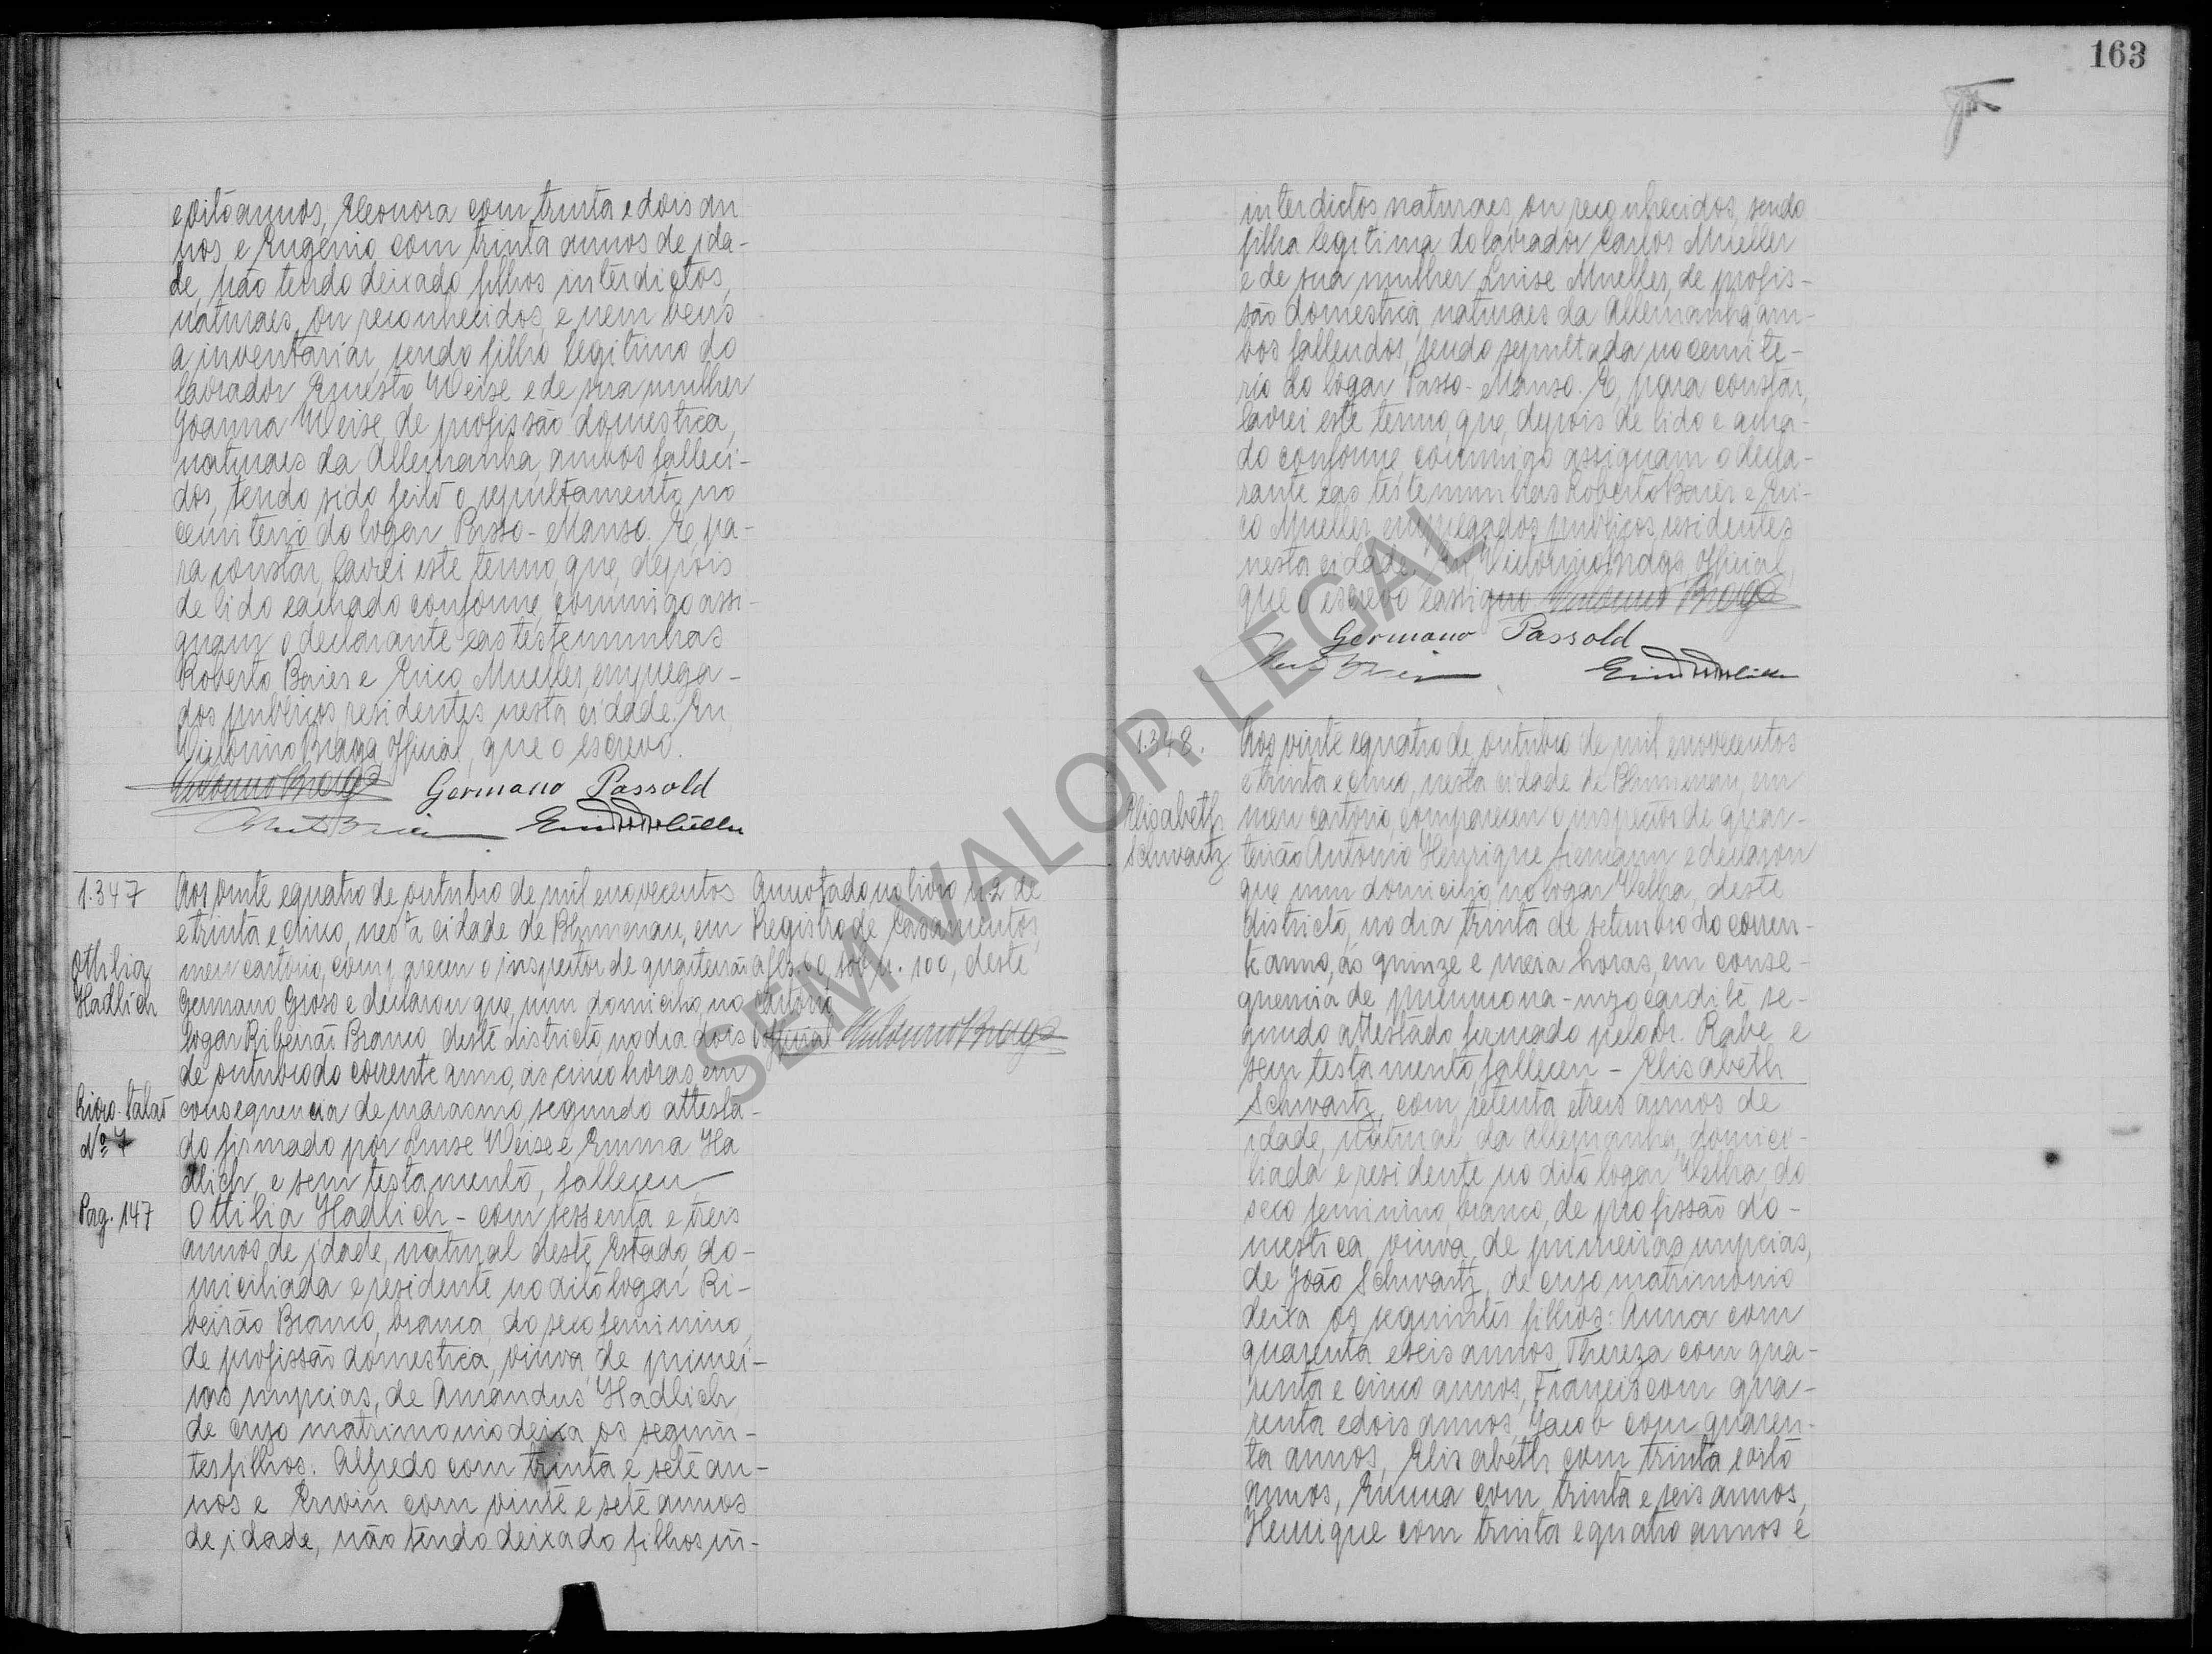 e oito annos, Eleonora com trinta e dois an
nos e Eugenio com trinta annos de ida-
de, não tendo deixado filhos interdictos,
naturaes, ou reconhecidos, e nem bens
a inventariar, sendo filho legitimo do
lavrador Ernesto Weise e de sua mulher
Joanna Weise, de profissão domestica,
naturaes da Allemanha, ambos falleci-
dos, tendo sido feito o sepultamento no
cemiterio do logar Passo-Manso. E, pa-
ra constar, lavrei este termo, que, depois
de lido e achado conforme, commigo assi-
gnam o declarante e as testemunhas
Roberto Baier e Erico Mueller, emprega-
dos publicos, residentes nesta cidade. Eu
Victorino Braga, official, que o escrevo.
Victorino Braga Germano Passold
1.347
Othilia
Hadlich
Livro-talão
Nº 7
Pag. 147
Aos vinte e quatro de outubro de mil e novecentos
e trinta e cinco, nesta cidade de Blumenau, em
meu cartorio, compareceu o inspector de quarteirão
Germano Gross e declarou que, num domicilio, no
logar Ribeirão Branco, deste districto, no dia dois
de outubro do corrente anno, ás cinco horas, em
consequencia de marasmo, segundo attesta-
do firmado por Luise Weise e Emma Ha
dlich, e sem testamento, falleceu
Ottilia Hadlich - com sessenta e treis
annos de idade, natural deste Estado, do-
miciliada e residente no dito logar Ri-
beirão Branco, branca, do sexo feminino,
de profissão domestica, viuva, de primei-
ras nupcias, de Amandus Hadlich,
de cujo matrimonio deixa os seguin-
tes filhos: Alfredo com trinta e sete an-
nos e Erwin com vinte e sete annos
de idade, não tendo deixado filhos in-
Annotado no livro n.2 de
Registro de Casamentos,
a fls. 60, sob n. 100, deste
cartorio
Official Victorino Braga
163
interdictos, naturaes, ou reconhecidos, sendo
filha legitima do lavrador Carlos Mueller
e de sua mulher Luise Mueller, de profis-
são domestica, naturaes da Allemanha, am-
bos fallecidos, sendo sepultada no cemite-
rio do logar Passo-Manso. E, para constar,
lavrei este termo, que, depois de lido e acha-
do conforme, commigo assignam o decla-
rante e as testemunhas Roberto Baier e Eri-
co Mueller, empregados publicos, residentes
nesta cidade. Eu, Victorino Braga, official,
que o escrevo e assigno Victorino Braga
Germano Passold
1.348.
Elisabeth
Schwartz
Aos vinte e quatro de outubro de mil e novecentos
e trinta e cinco, nesta cidade de Blumenau, em
meu cartorio, compareceu o inspector de quar-
teirão Antonio Henrique e declarou
que num domicilio, no logar Velha, deste
districto, no dia trinta de setembro do corren-
te anno, ás quinze e meia horas, em conse-
quencia de pneumona-myocardite, se-
gundo attestado firmado pelo Dr. Rabe, e
sem testamento, falleceu - Elisabeth
Schwartz, com setenta e treis annos de
idade, natural da Allemanha, domici-
liada e residente no dito logar Velha, do
sexo feminino, branco, de profissão do-
mestica, viuva, de primeiras nupcias,
de João Schwartz, de cujo matrimonio
deixa os seguintes filhos: Anna com
quarenta e seis annos, Thereza com qua-
renta e cinco annos, Francis com qua-
renta e dois annos, Jacob com quaren-
ta annos, Elisabeth com trinta e oito
annos, Emma com trinta e seis annos,
Henrique com trinta e quatro annos e
SEM VALOR LEGAL